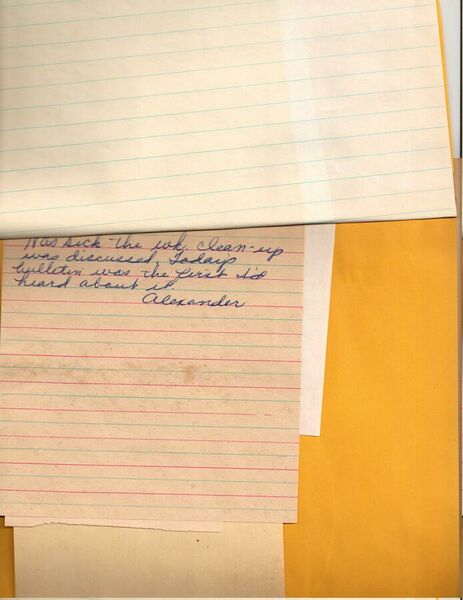 Was sick the wk. clean-up
was discussed. Today's
bulletin was the first I'd
heard about it.
Alexander